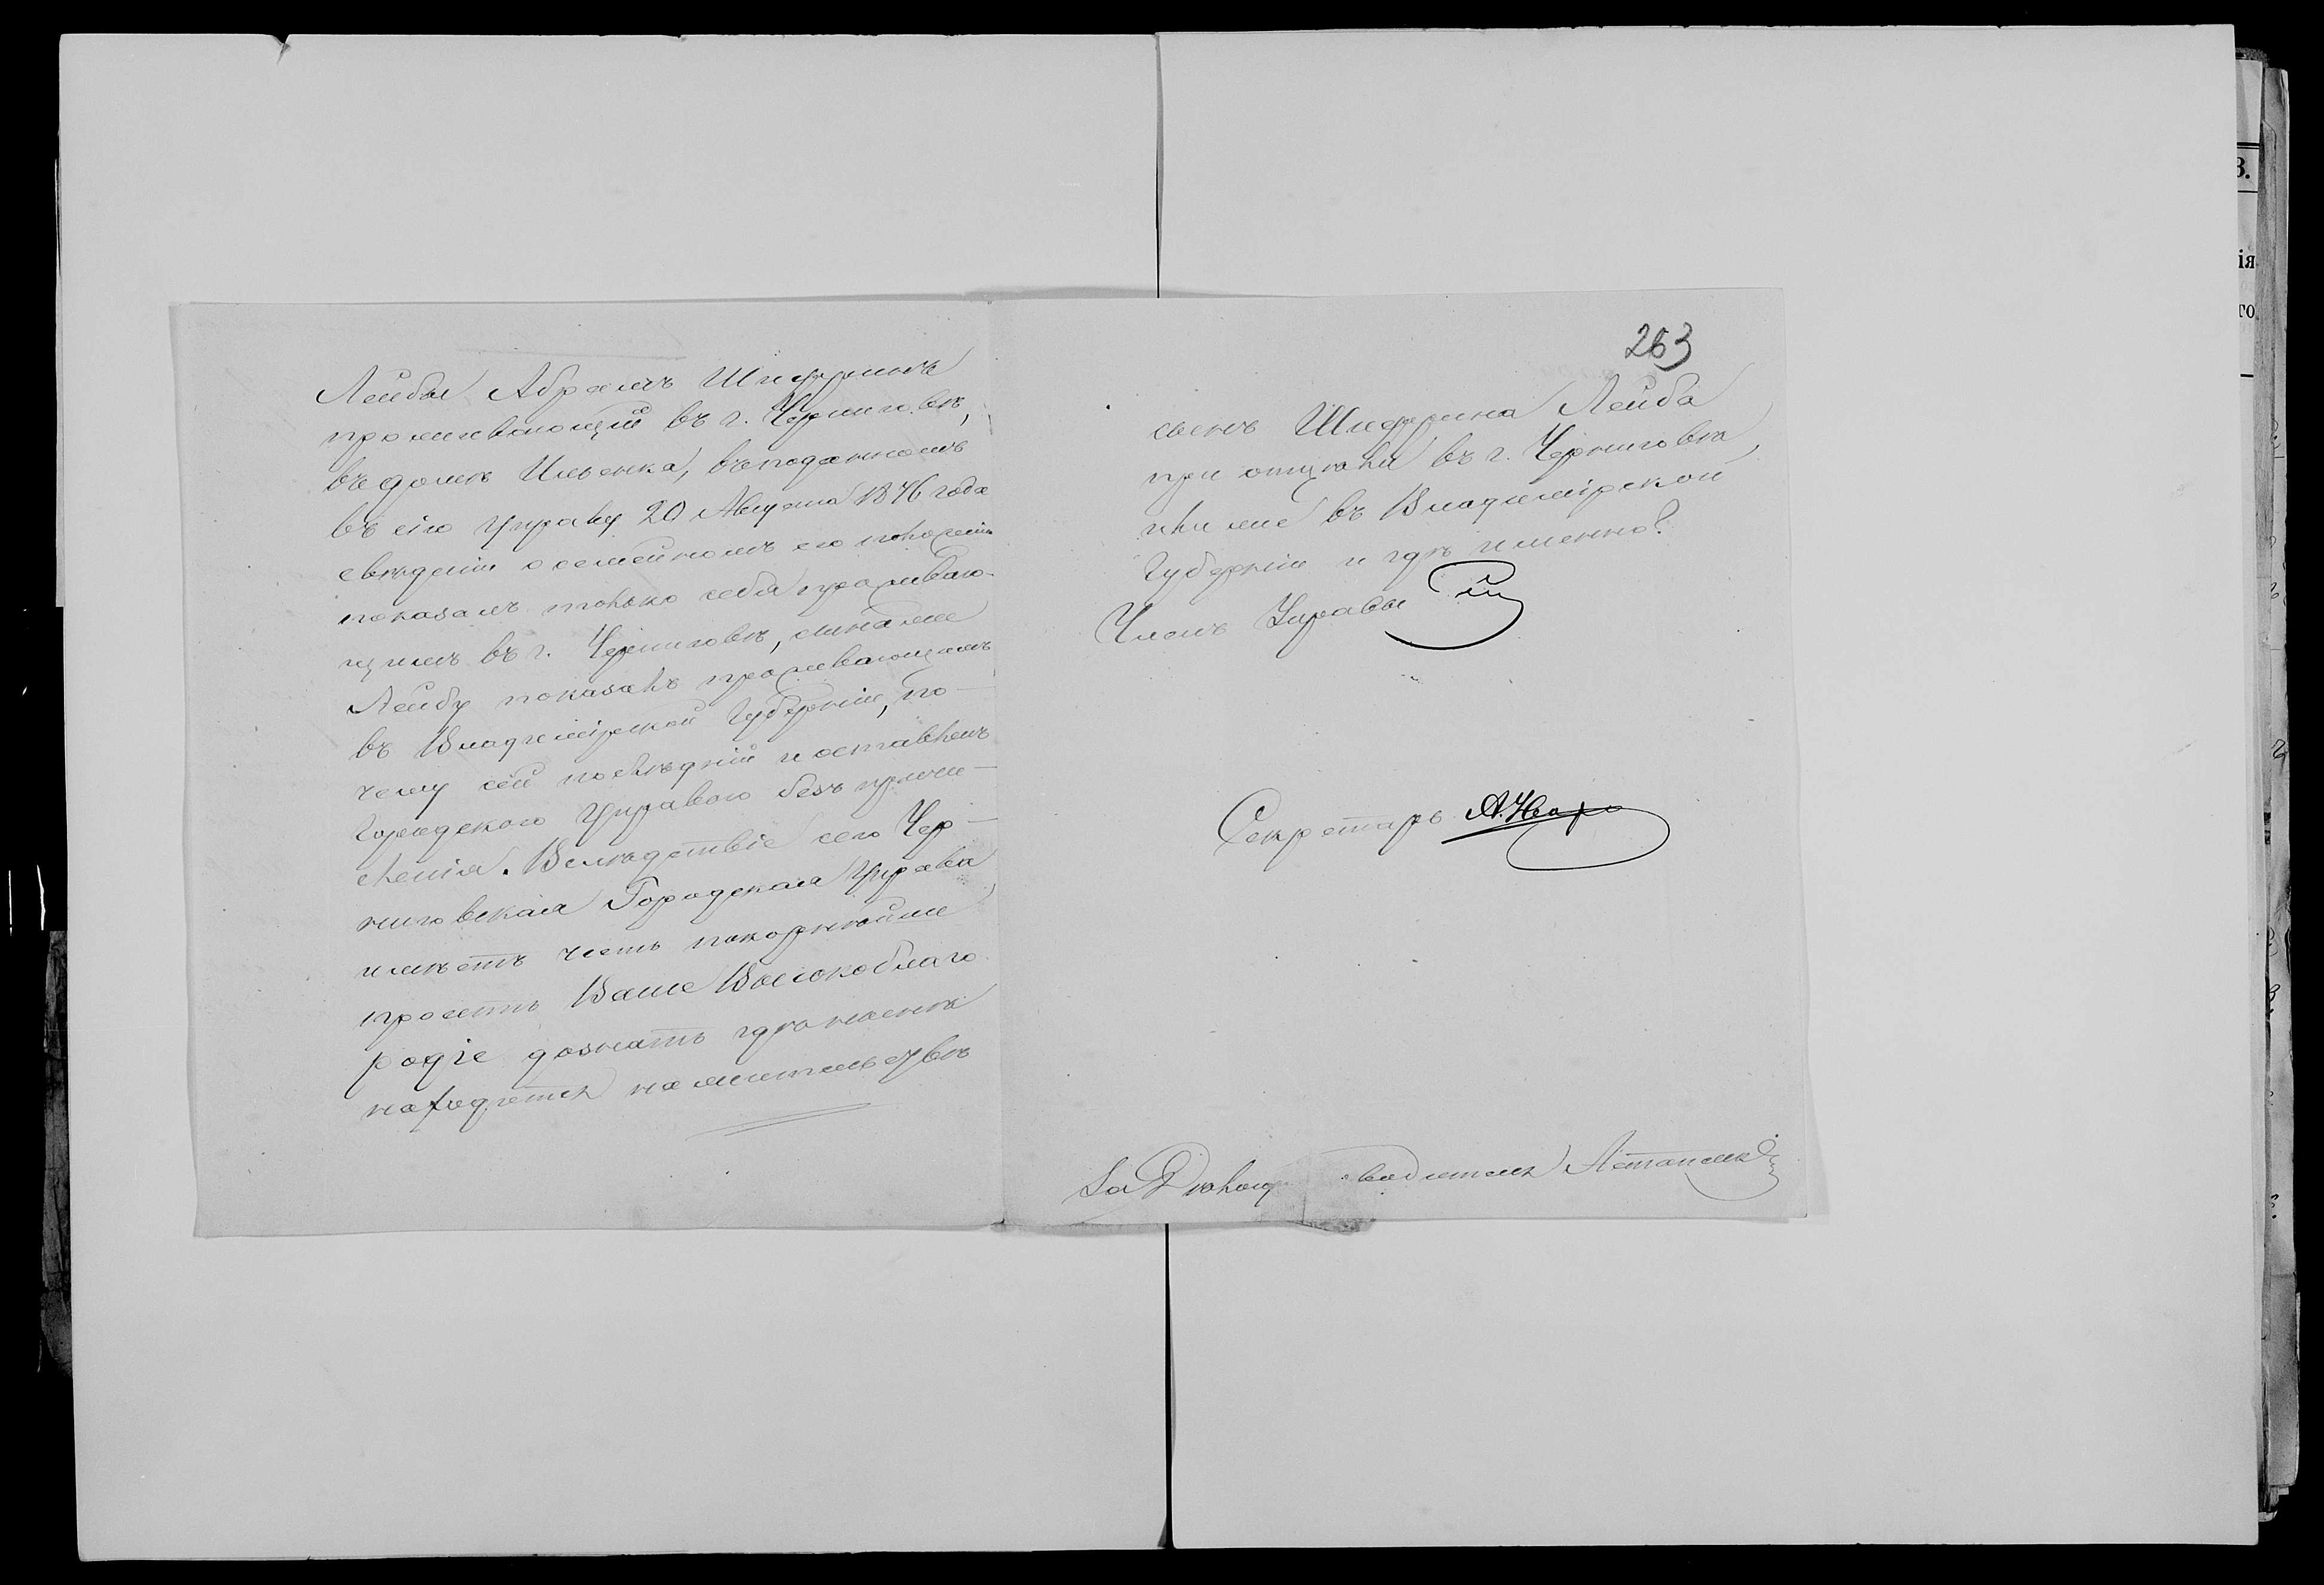 Лейбы Абрамъ Шифринъ
проживающій въ г. Черниговѣ,
въ домѣ Ильенка, въ поданномъ
въ сію Управу 20 Августа 1876 года
свѣдѣніи о семейномъ его положеніи
показалъ только себя проживаю-
щимъ въ г. Черниговѣ, сына же
Лейбу показалъ проживающимъ
въ Владимірской Губерніи, по-
чему сей послѣдній и оставленъ
Городскою Управою безъ причи-
сленія. Вслѣдствіе сего Чер-
ниговская Городская Управа
имѣетъ честь покорнѣйше
просить Ваше Высокоблаго
родіе дознать гдѣ нынѣ
находится на жительствѣ
263
сынъ Шифрина Лейба
при отцѣ ли въ г. Черниговѣ,
или же въ Владимірской
Губерніи и гдѣ именно?
Членъ Управы
Секретарь
За Дѣлопр водителя
В.
ія
го